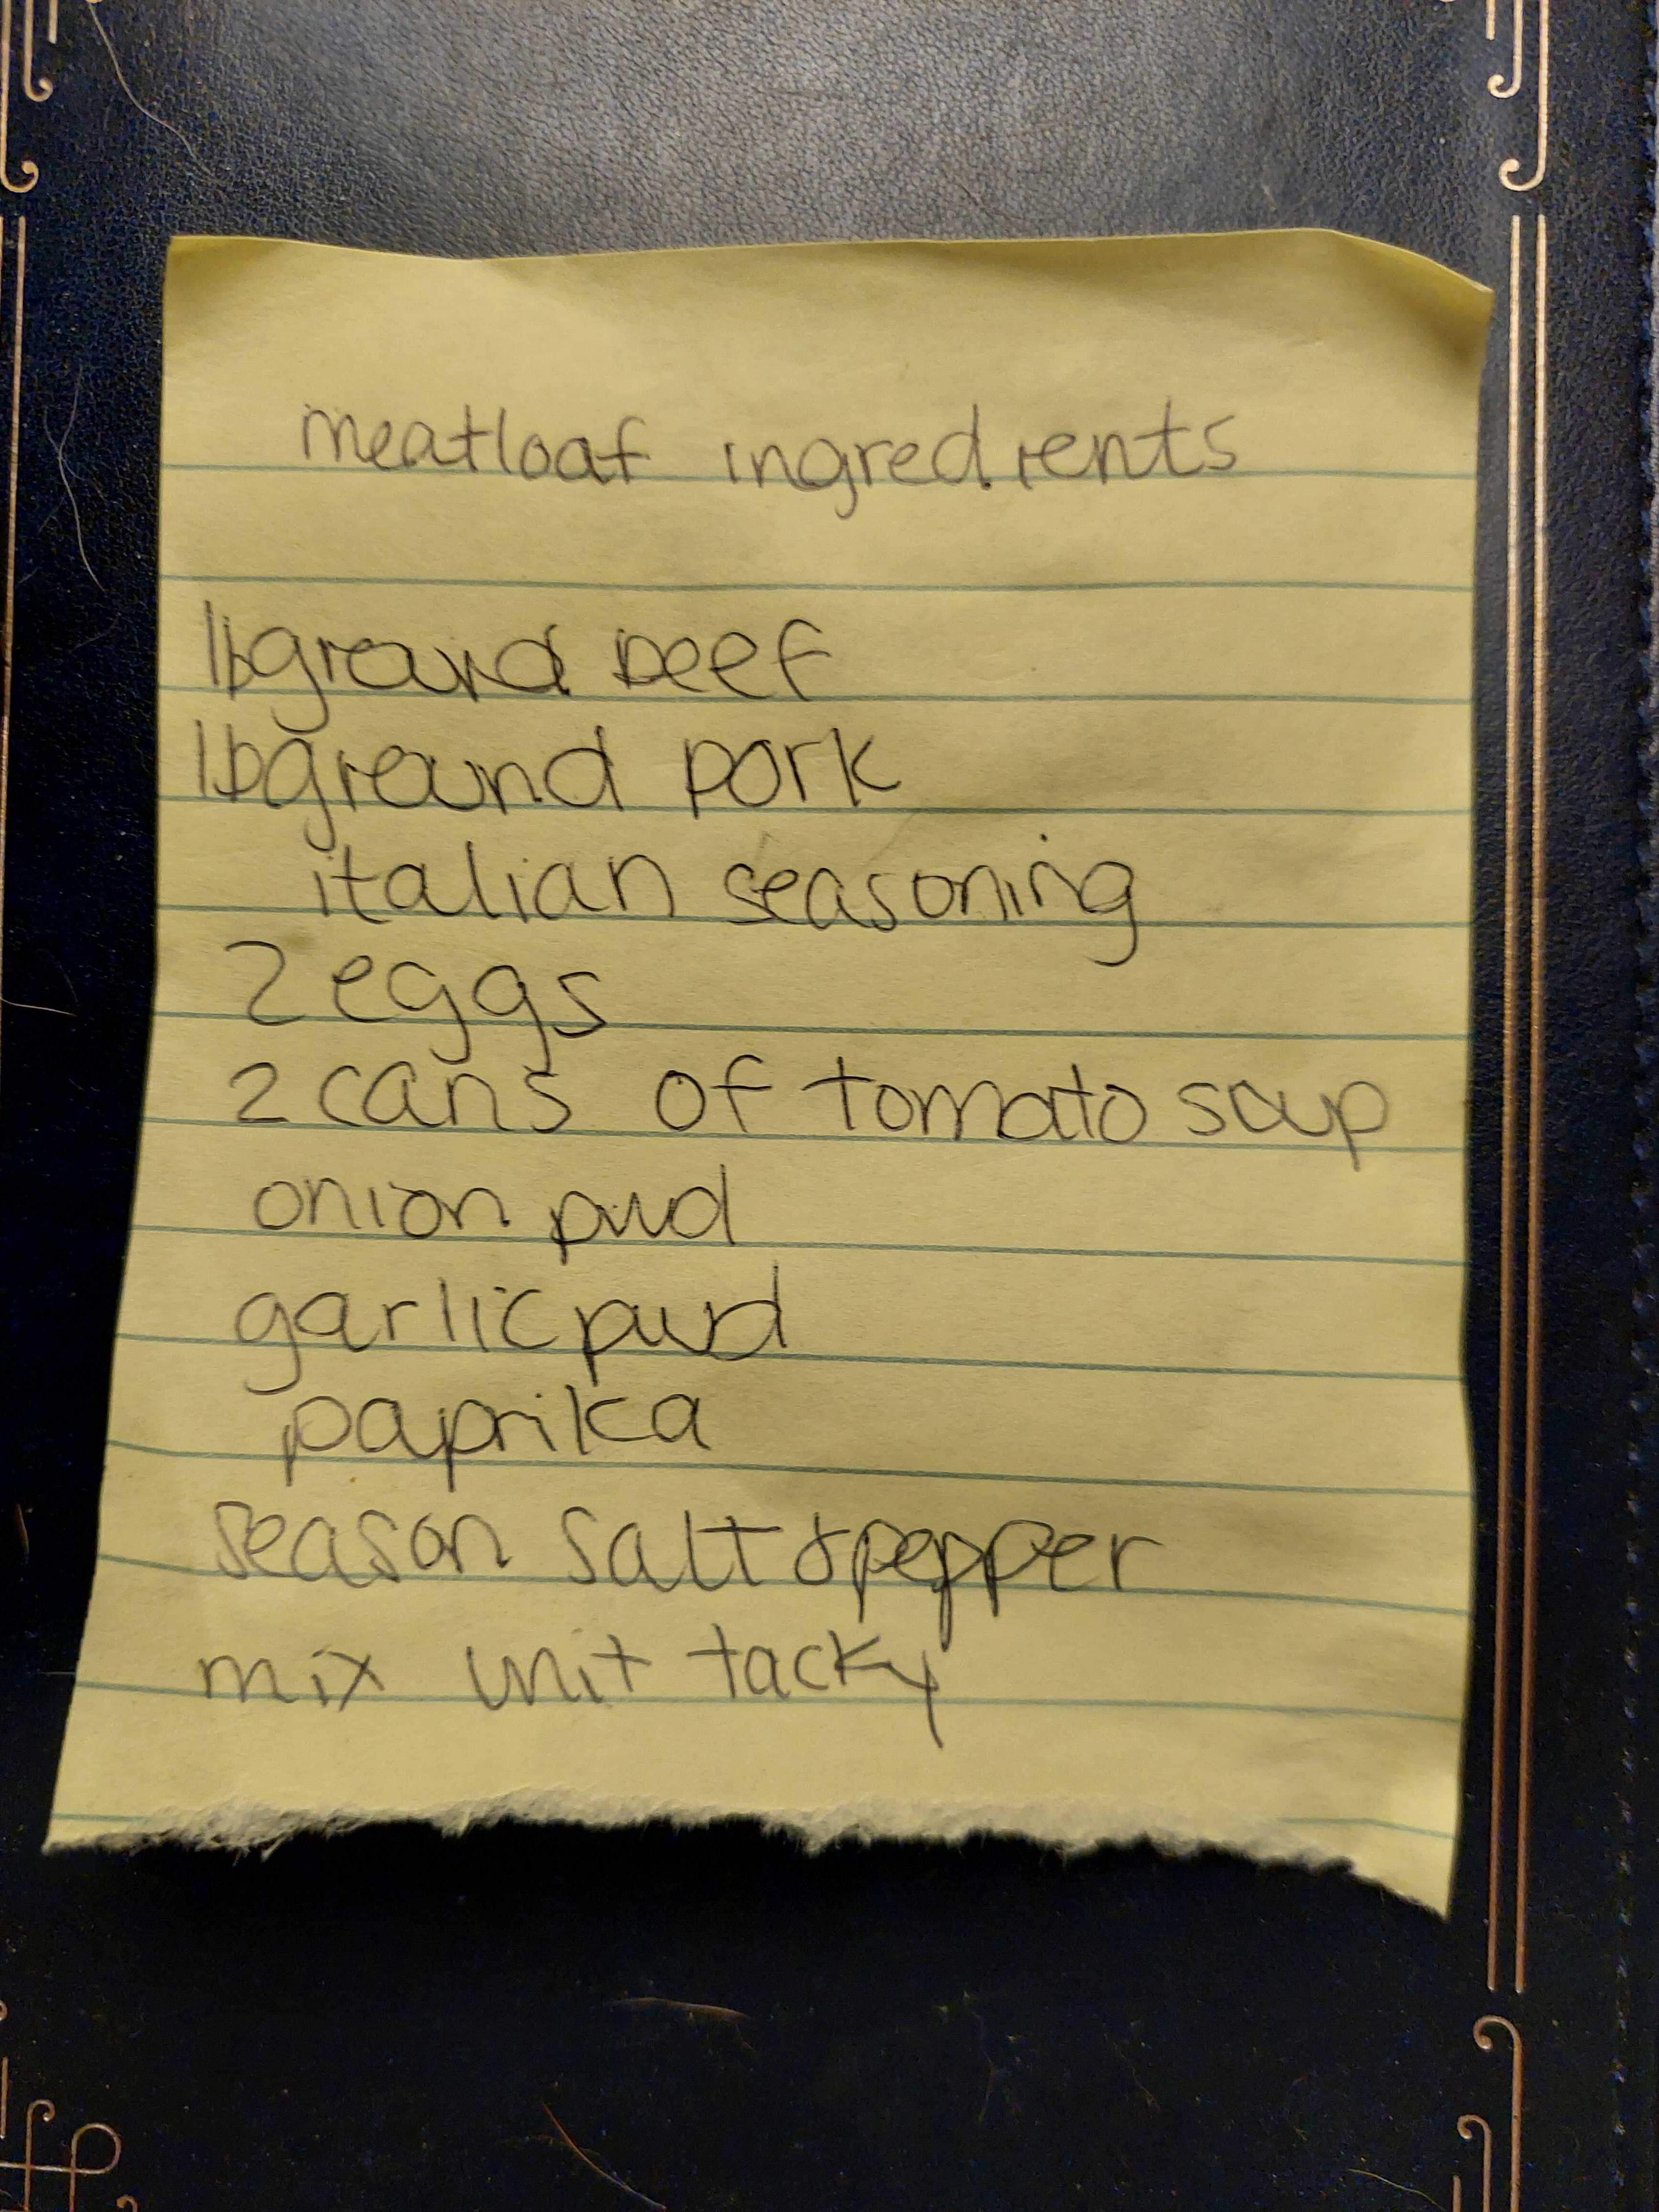 meatloaf ingredients
1lb ground beef
1lb ground pork
italian seasoning
2 eggs
2 cans of tomato soup
onion pwd
garlic pwd
paprika
season salt & pepper
mix unit tacky